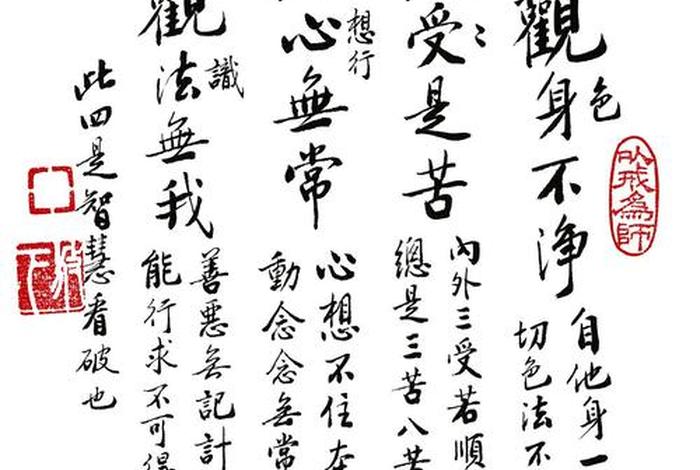 以戒為師
色
觀身不淨
自他身一
切色法不
受〻是苦
內外三受若順
總是三苦八苦
想行
心無常
心想不住
動念念無常
識
觀法無我
善惡無記計
能行求不可得
此四是智慧看破也